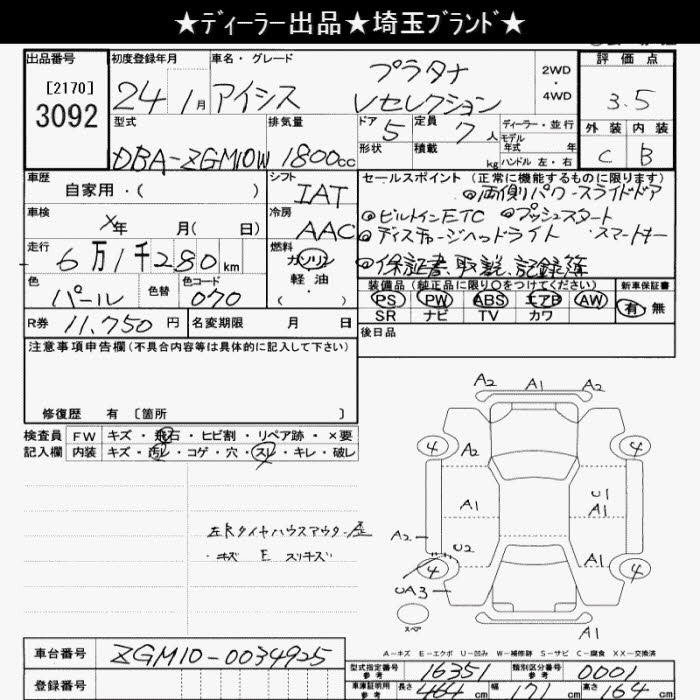 ★ディーラー出品★埼玉ブランド★
出品番号
[2170]
3092
初度登録年月
24 1月
車名・グレード
アイシス
プラタナ
Vセレクション
2WD
・
4WD
評価点
3.5
外装 内装
C B
型式
DBA-ZGM10W
排気量
1800cc
ドア 5
形状
定員 7人
積載 kg
ディーラー・並行
モデル年式 年
ハンドル 左・右
車歴
自家用・( )
シフト
IAT
車検
×年 月( 日)
冷房
AAC
走行
6万1千280km
燃料
ガソリン
軽油
・
色
パール
色替
色コード
070
R券 11,750円
名変期限 月 日
セールスポイント (正常に機能するものに限ります)
◎両側パワースライドドア
◎ビルトインETC ◎プッシュスタート
◎ディスチャージヘッドライト ・スマートキー
◎保証書、取説、記録簿
装備品 (純正品に限り○をつけてください)
PS PW ABS エアB AW
SR ナビ TV カワ
新車保証書
有・無
後日品
注意事項申告欄(不具合内容等は具体的に記入して下さい)
修復歴 有 〔箇所 〕
検査員
記入欄
FW キズ・飛石・ヒビ割・リペア跡・×要
内装 キズ・汚レ・コゲ・穴・スレ・キレ・破レ
・キズ E スリキズ
A2 A1 A2
4 4
A2
A1 U1
A1
A2
U2 A1
4 4
UA3
スペア
A1
A−キズ E−エクボ U−凹み W−補修跡 S−サビ C−腐食 XX−交換済
車台番号 ZGM10-0034925
登録番号
型式指定番号
参考
16351
類別区分番号
参考
0001
車庫証明用
参考
長さ 464cm 幅 171cm 高さ 164cm